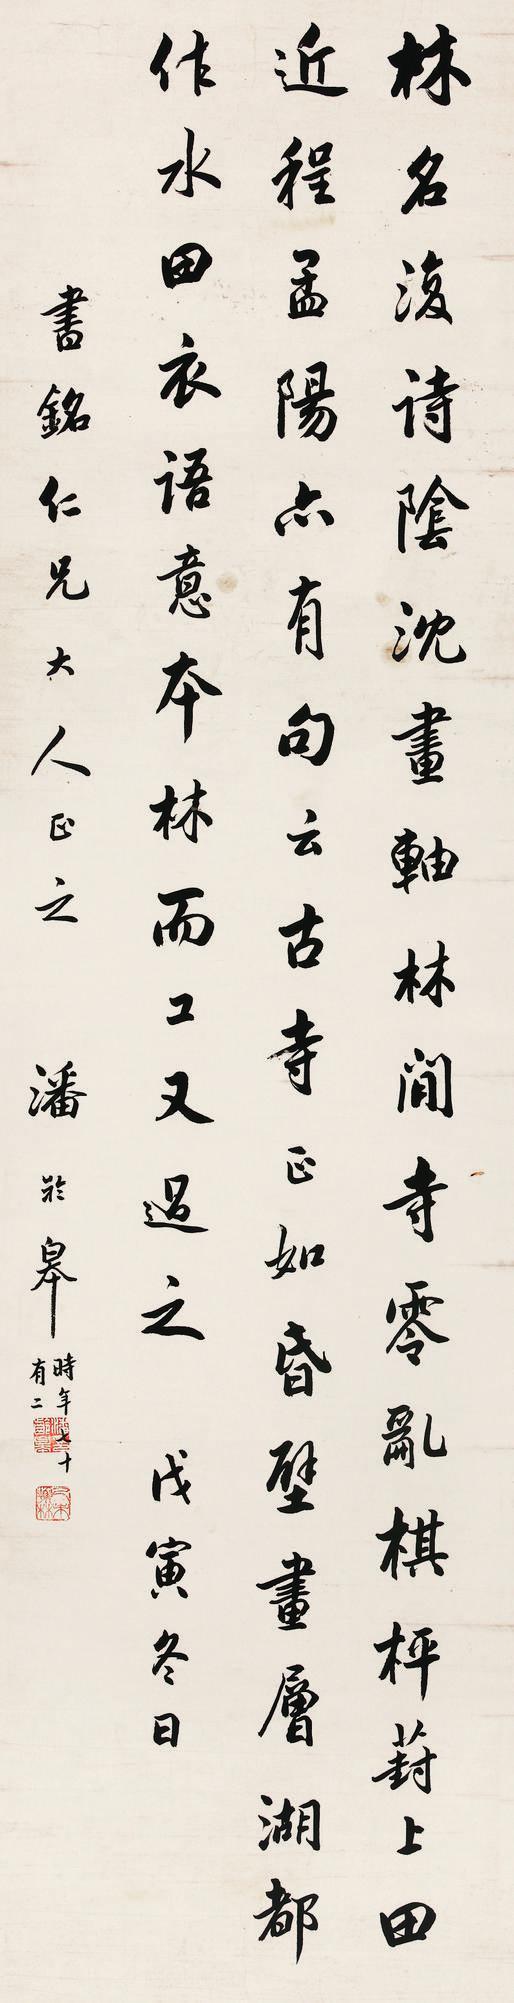 林名復詩陰沈畫軸林間寺零亂棋枰葑上田
近程孟陽亦有句云古寺正如昏壁畫層湖都
作水田衣語意本林而工又過之 戊寅冬日
書銘仁兄大人正之 潘齡皋
時年七十
有二